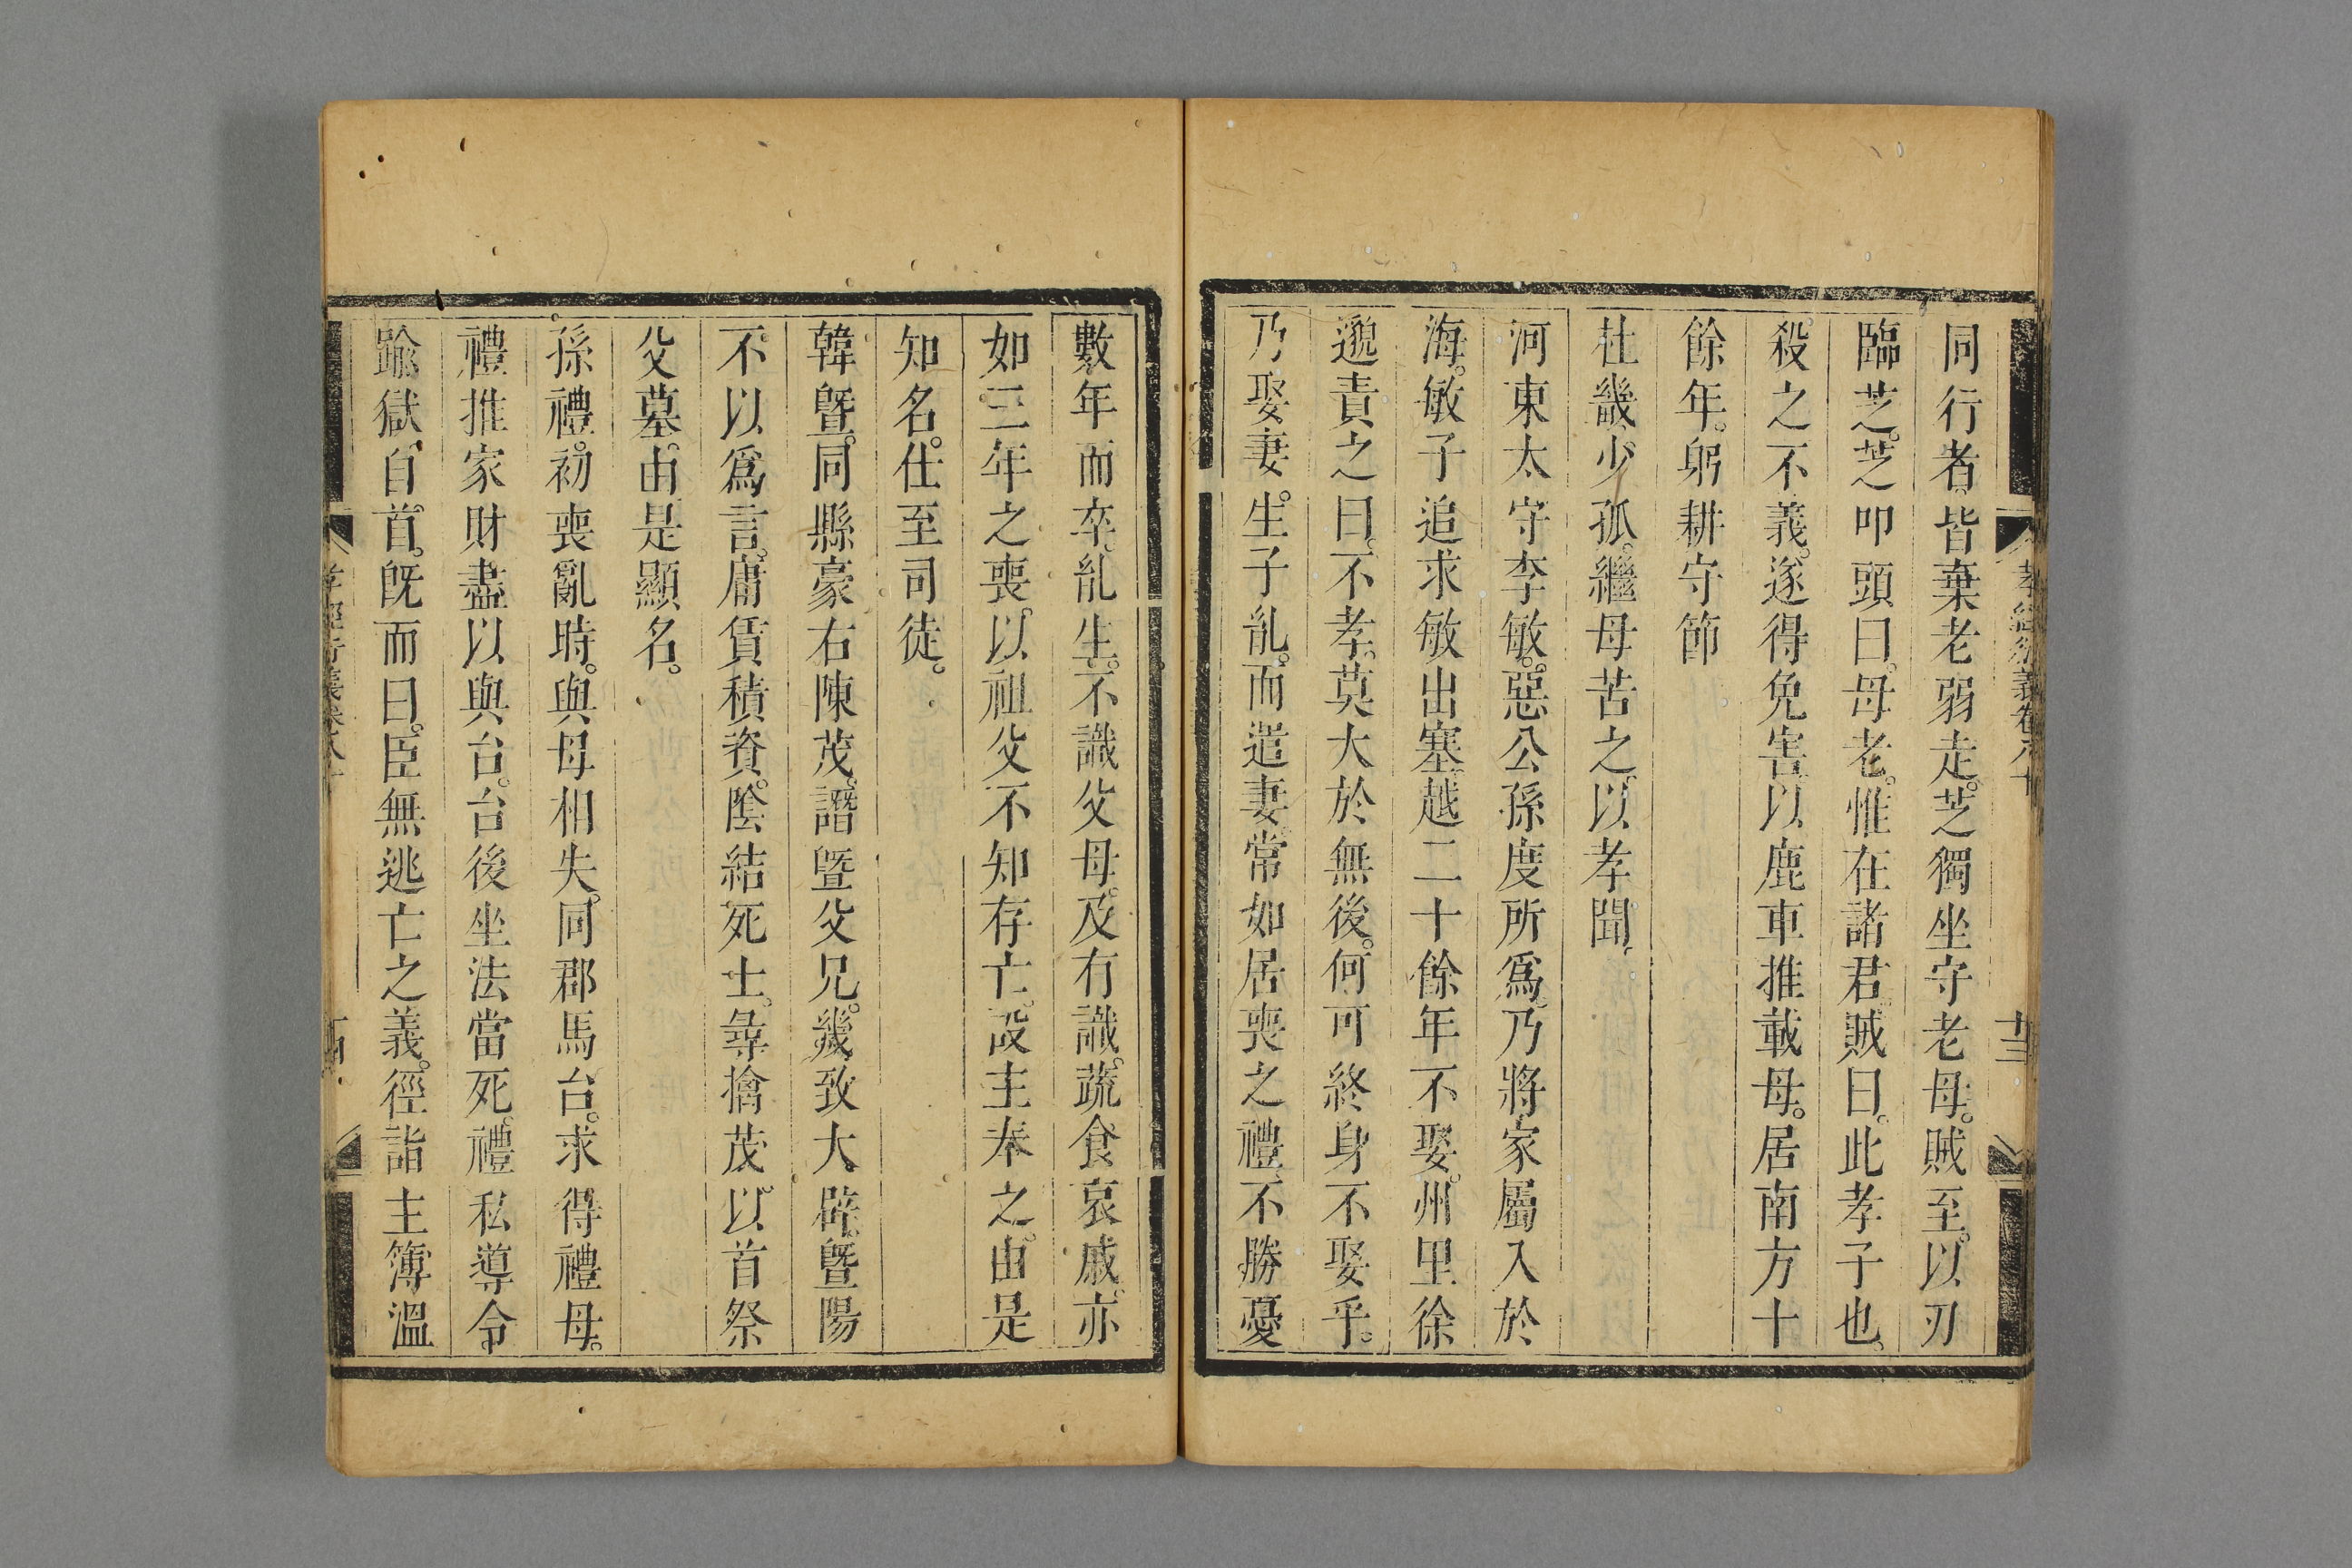 孝經衍義卷八十
十三
同行者。皆棄老弱走。芝獨坐守老母。賊至。以刃
臨芝。芝叩頭曰。母老。惟在諸君。賊曰。此孝子也。
殺之不義。遂得免害。以鹿車推載母。居南方十
餘年。躬耕守節
杜畿少孤。繼母苦之。以孝聞。
河東太守李敏。惡公孫度所爲。乃將家屬入於
海。敏子追求敏出塞。越二十餘年不娶。州里徐
邈責之曰。不孝。莫大於無後。何可終身不娶乎。
乃娶妻。生子胤。而遣妻。常如居喪之禮。不勝憂
數年而卒。胤生。不識父母。及有識。蔬食哀戚。亦
如三年之喪。以祖父不知存亡。設主奉之。由是
知名。仕至司徒。
韓曁。同縣豪右陳茂。譖曁父兄。幾致大辟。曁陽
不以爲言。庸賃積資。陰結死士。尋擒茂。以首祭
父墓。由是顯名。
孫禮。初喪亂時。與母相失。同郡馬台。求得禮母。
禮推家財盡以與台。台後坐法當死。禮私導令
踰獄。自首。旣而曰。臣無逃亡之義。徑詣主簿溫
孝經衍義卷八十